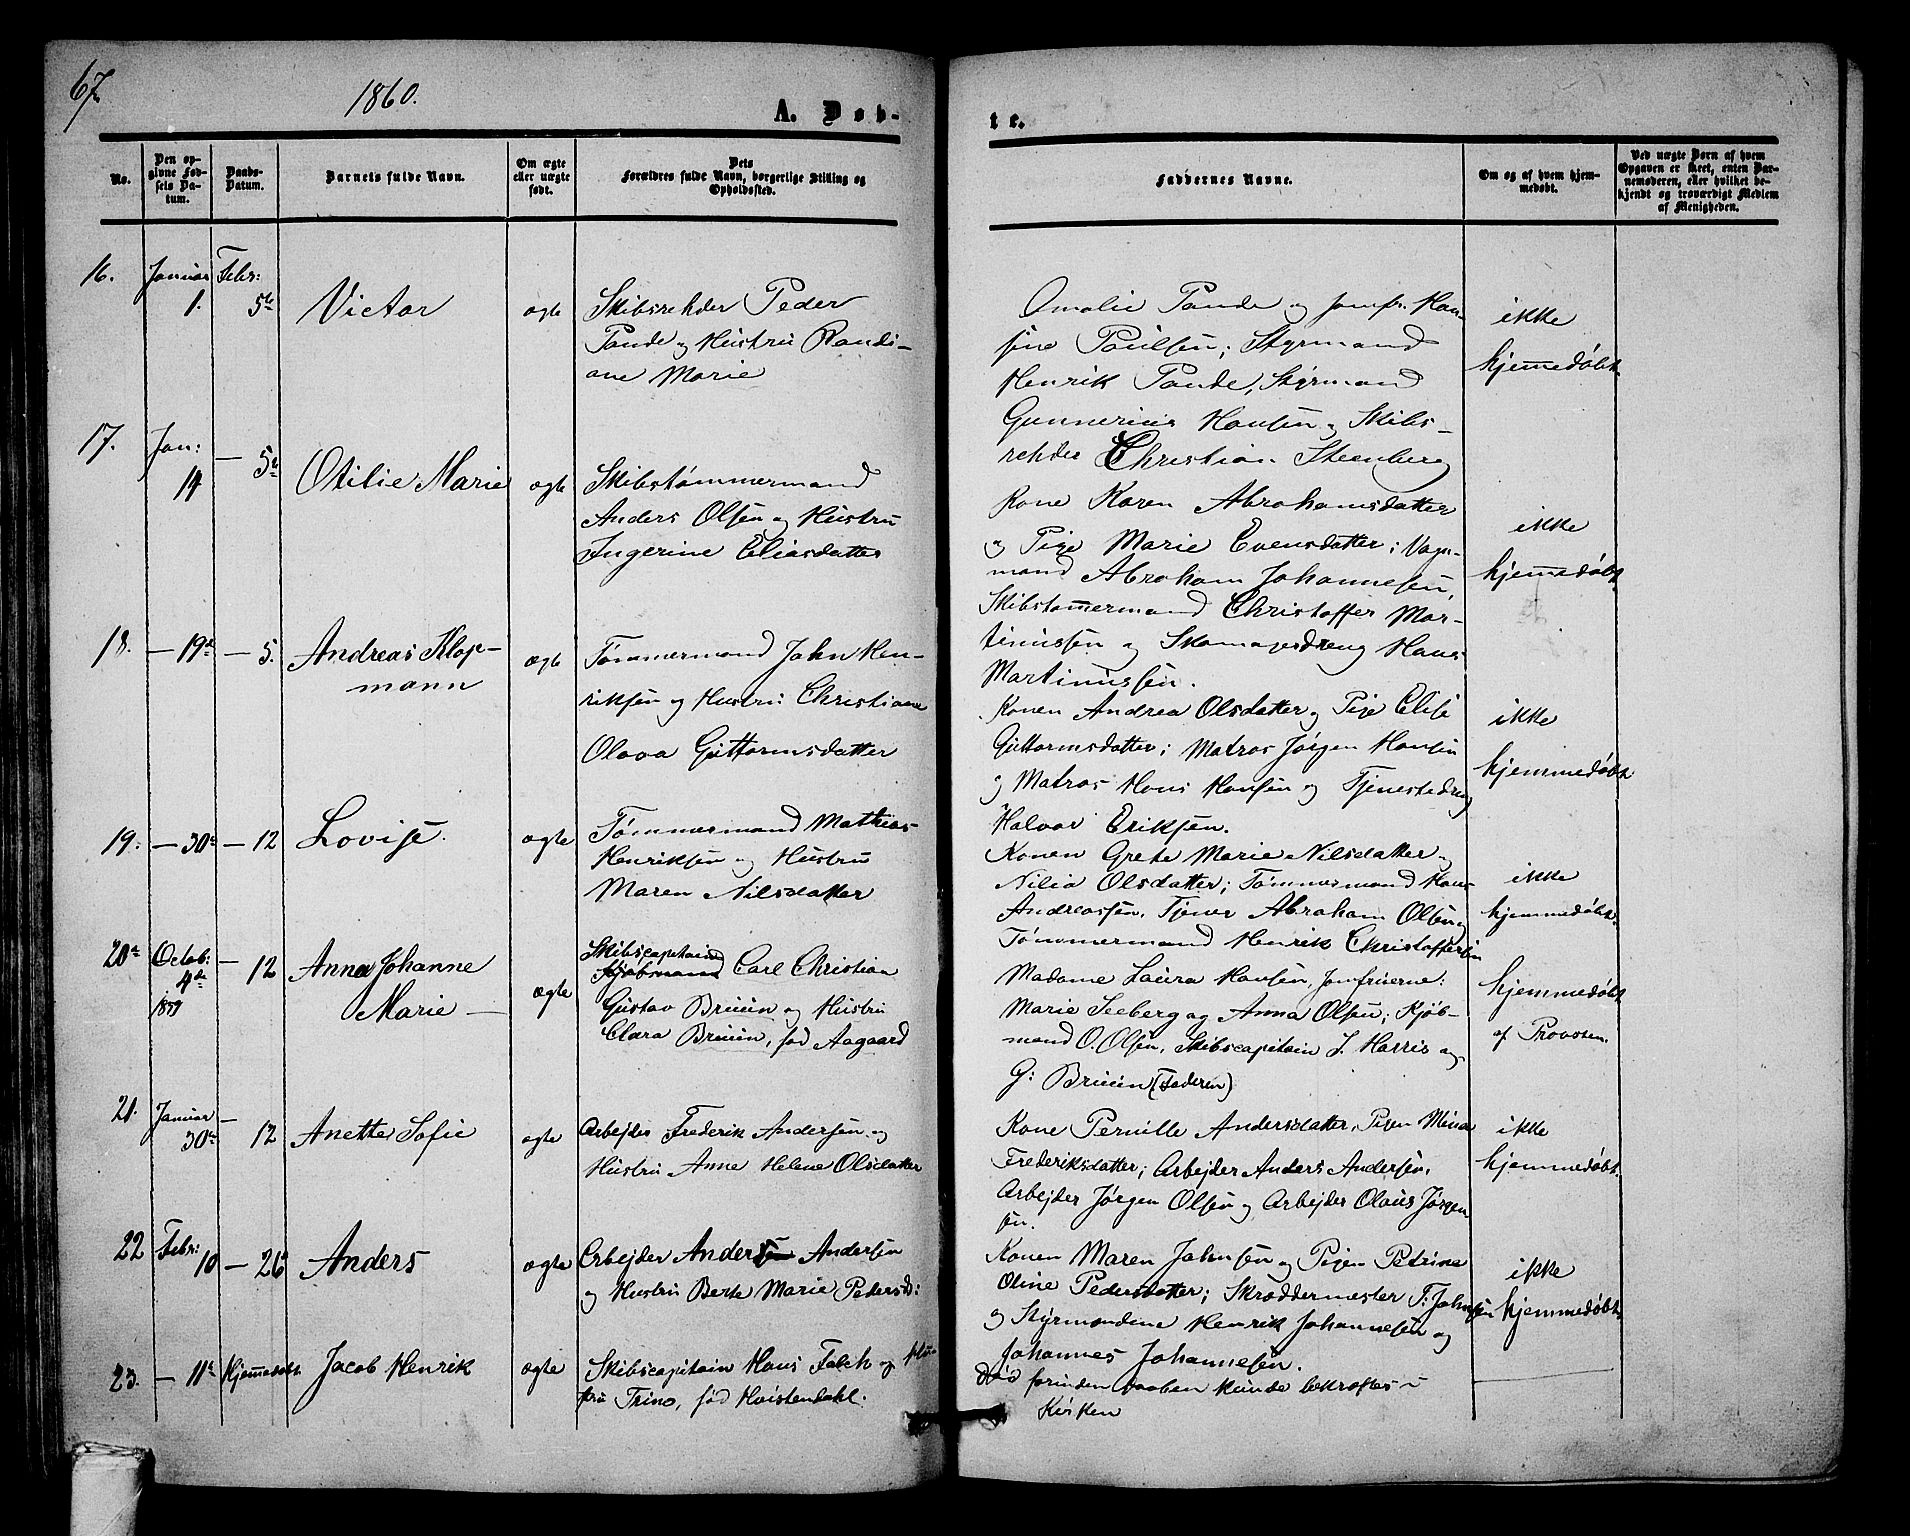 67
1860.
A. Døb-
te.
No.
Den op-
givne Fød-
sels Da-
tum.
Daabs-
Datum.
Barnets fulde Navn.
Om ægte
eller uægte
født.
Dets
Forældres fulde Navn, borgerlige Stilling og
Opholdssted.
Faddernes Navne.
Om og af hvem hjem-
medøbt.
Ved uægte Børn af hvem
Opgaven er skeet, enten Bar-
nemoderen, eller hvilket be-
kjendt og troværdigt Medlem
af Menigheden.
16.
Januar
1.
Febr:
5te
Victor
ægte
Skibsrehder Peder
Pande og Hustru Randi-
ane Marie
Amalie Pande og Jomfr. Han-
sine Paulsen; Styrmand
Henrik Pande, Styrmand
Gunnerius Hansen og Skibs-
rehder Christian Steenberg
ikke
hjemmedøbt.
17.
Jan:
14
— 5te
Otilie Marie
ægte
Skibstømmermand
Anders Olsen og Hustru
Ingerine Eliasdatter
Kone Karen Abrahamsdatter
og Pige Marie Evensdatter; Vogn-
mand Abraham Johannesen,
Skibstømmermand Christoffer Mar-
tinussen og Skomagerdreng Hans
Martinussen.
ikke
hjemmedøbt.
18.
— 19de
— 5.
Andreas Klop-
mann
ægte
Tømmermand John Hen-
riksen og Hustru Christiane
Olava Guttormsdatter
Konen Andrea Olsdatter og Pige Elise
Guttormsdatter; Matros Jørgen Hansen
og Matros Hans Hansen og Tjenestedreng
Halvor Eriksen.
ikke
hjemmedøbt
19.
— 30te
— 12
Lovise.
ægte
Tømmermand Mathias
Henriksen og Hustru
Maren Nilsdatter
Konen Grete Marie Nilsdatter og
Nilia Olsdatter; Tømmermand Hans
Andreassen, Tjener Abraham Olsen og
Tømmermand Henrik Christoffersen
ikke
hjemmedøbt.
20de
Octob:
4de
1859
— 12
Anna Johanne
Marie —
ægte
Skibscapitain
Kjøbmand Carl Christian
Gustav Bruun og Hustru
Clara Bruun, fød Aagaard
Madame Laura Hansen, Jomfruerne:
Marie Seeberg og Anna Olsen; Kjøb-
mand O. Olsen, Skibscapitain J. Harris og
G: Bruun (Faderen)
hjemmedøbt
af Provsten.
21.
Januar
30te
— 12
Anette Sofie
ægte
Arbejder Frederik Andersen og
Hustru Anne Helene Olsdatter
Kone Pernille Andersdatter, Pigen Mina
Frederiksdatter; Arbejder Anders Andersen,
Arbejder Jørgen Olsen og Arbejder Olaus Jørgen-
sen.
ikke
hjemmedøbt.
22
Febr:
10
— 26de
Anders
ægte
Arbejder Anders Andersen
og Hustru Berte Marie Pedersd:
Konen Maren Johnsen og Pigen Petrine
Oline Pedersdatter; Skræddermester T: Johnsen
og Styrmændene Henrik Johannesen og
Johannes Johannesen.
ikke
hjemmedøbt
23.
— 11te
Hjemmedøbt
Jacob Henrik
ægte
Skibscapitain Hans Falch og Hu-
stru Trine, fød Hvistendahl.
død forinden Daaben kunde bekræftes i
Kirken